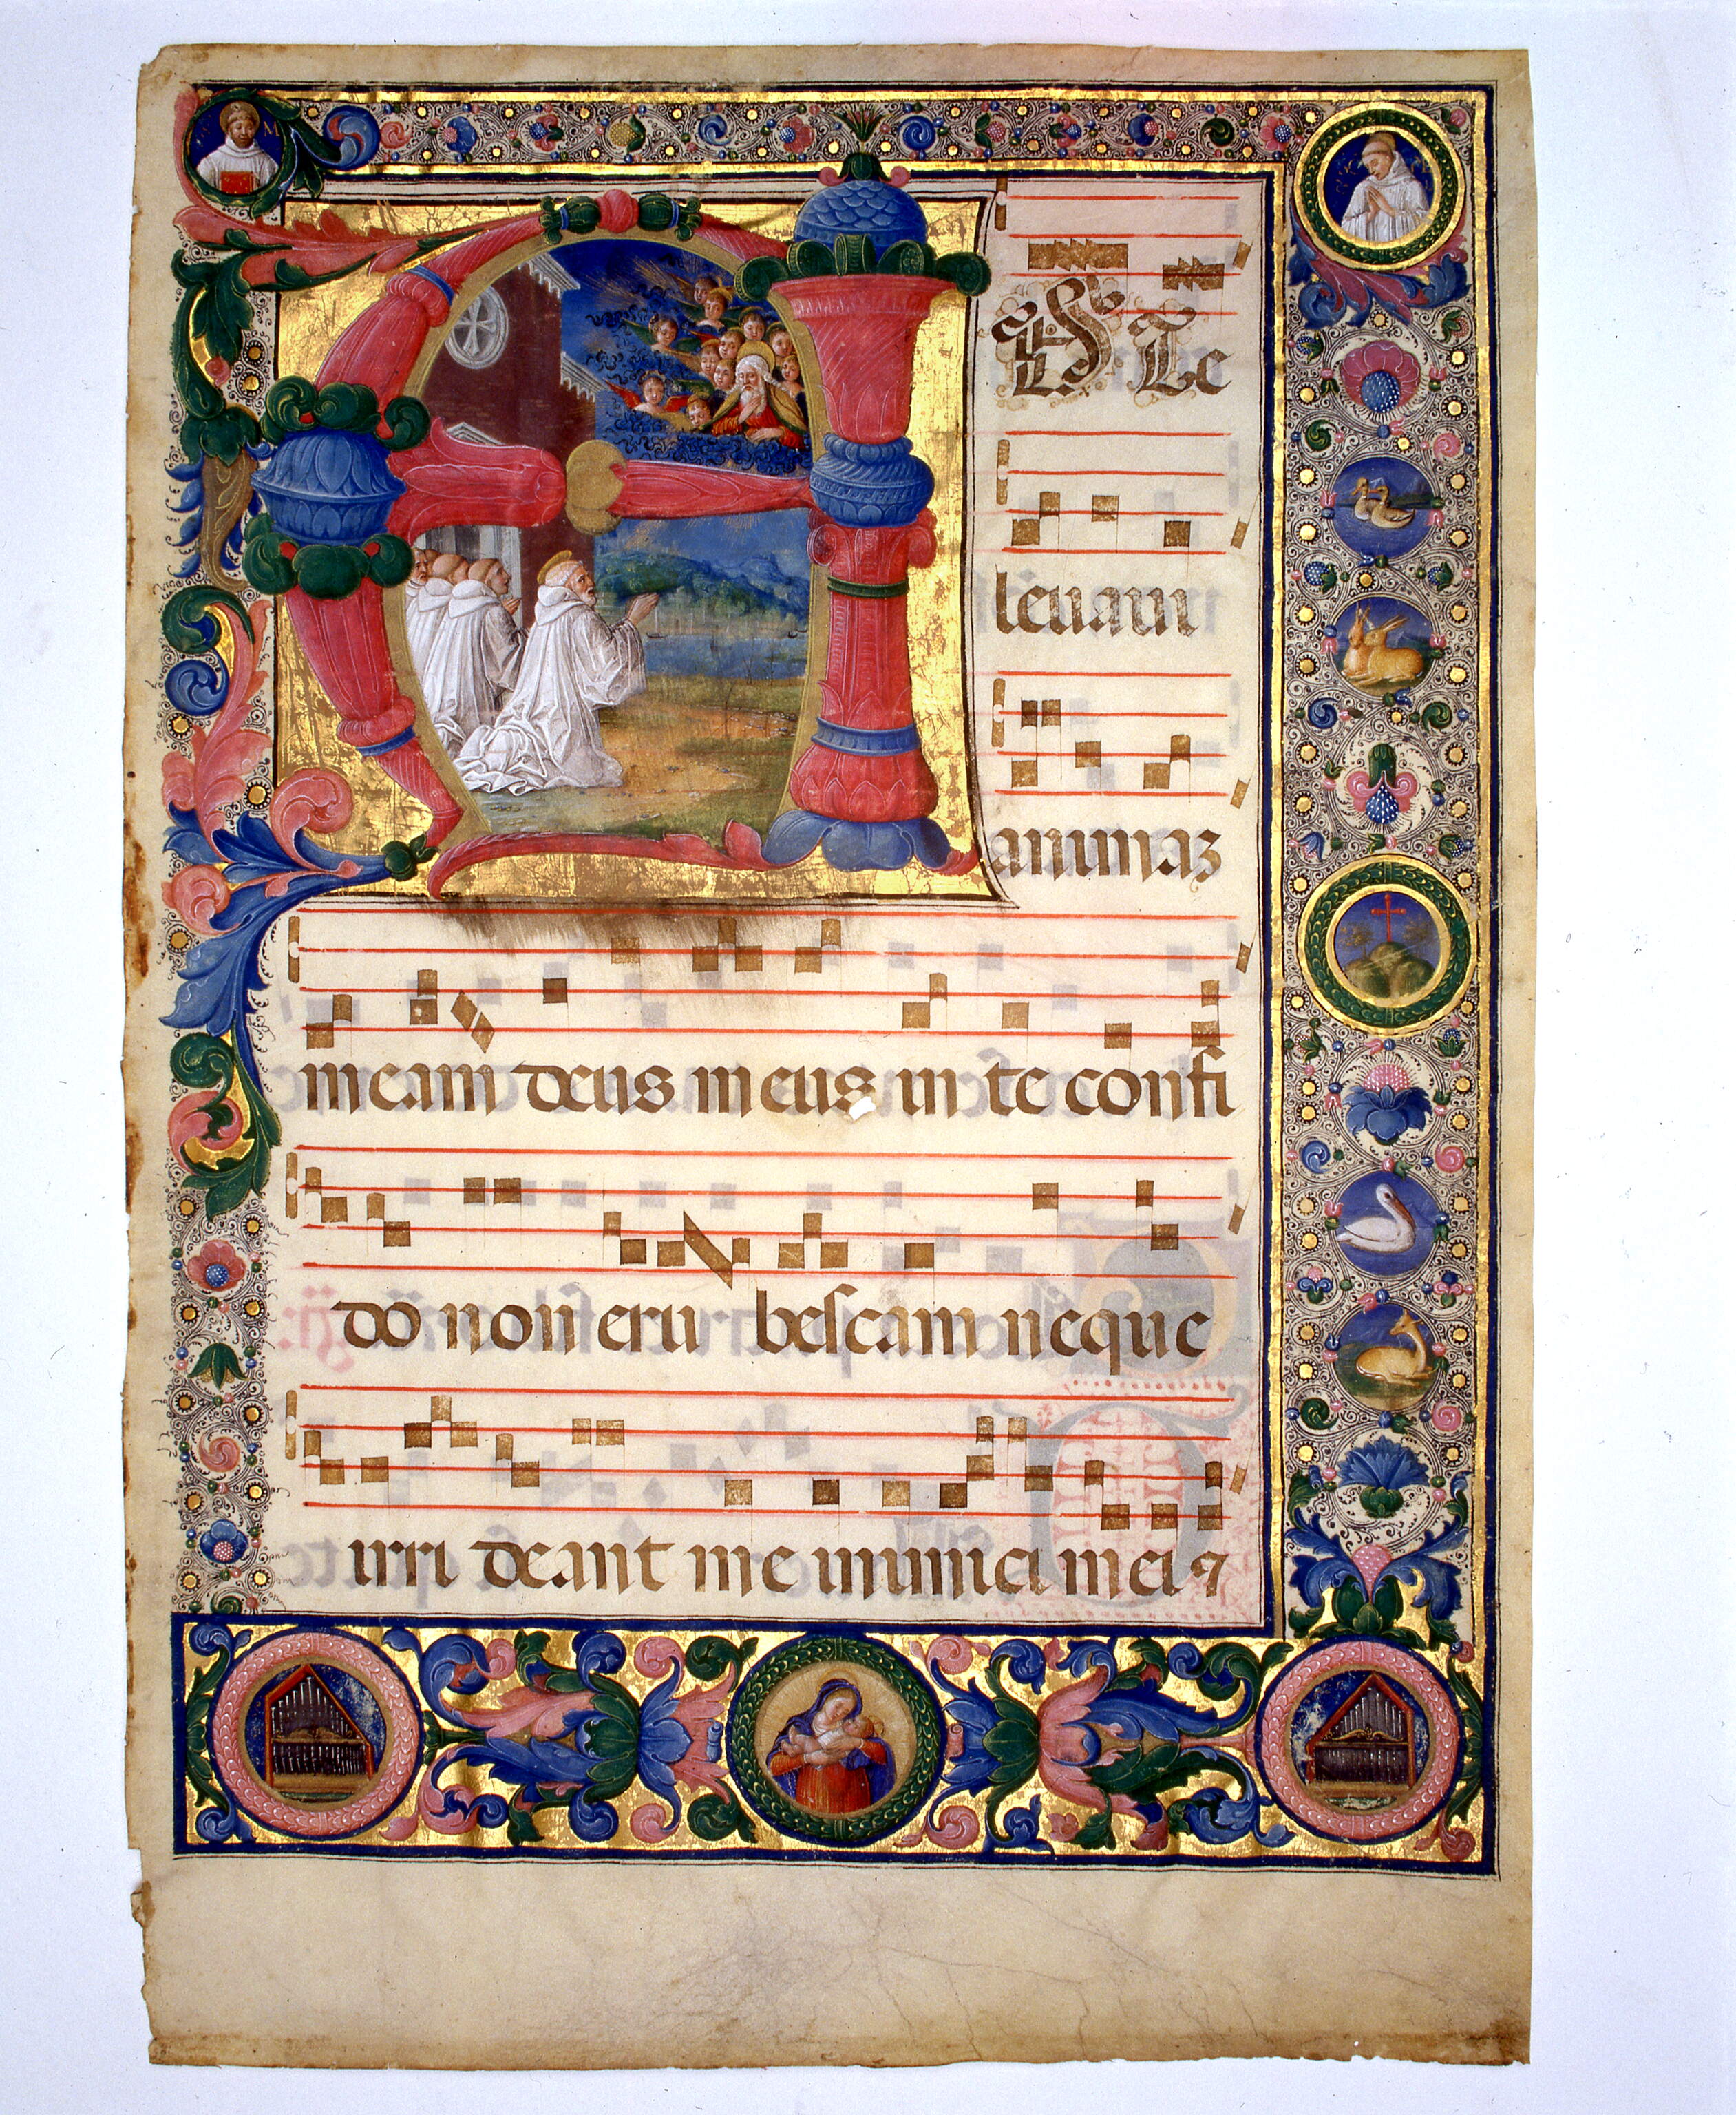 AD Te
leuaui
animaʒ
meam deus meus in te confi
do non eru beſcam neque
irri deant me inimici mei ⁊